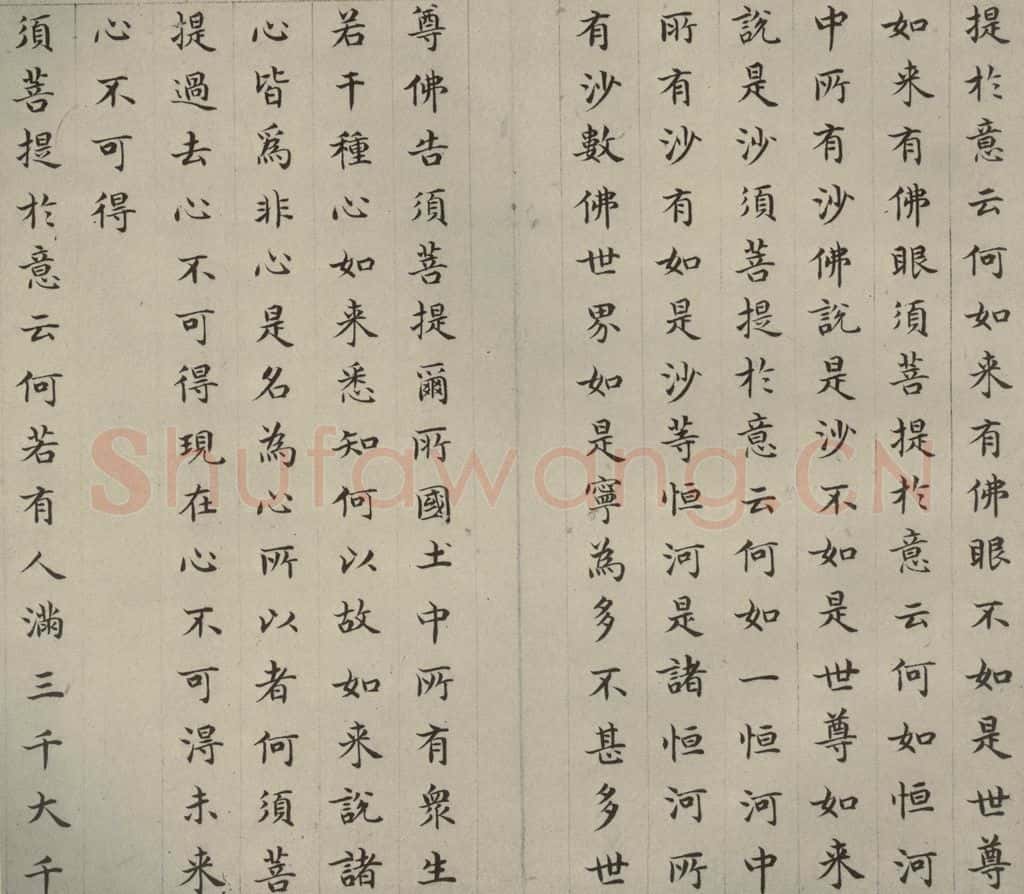 提於意云何如来有佛眼不如是世尊
如来有佛眼須菩提於意云何如恒河
中所有沙佛說是沙不如是世尊如来
說是沙須菩提於意云何如一恒河中
所有沙有如是沙等恒河是諸恒河所
有沙數佛世界如是寧為多不甚多世
尊佛告須菩提爾所國土中所有眾生
若干種心如来悉知何以故如来說諸
心皆爲非心是名為心所以者何須菩
提過去心不可得現在心不可得未来
心不可得
須菩提於意云何若有人滿三千大千
Shufawang.CN